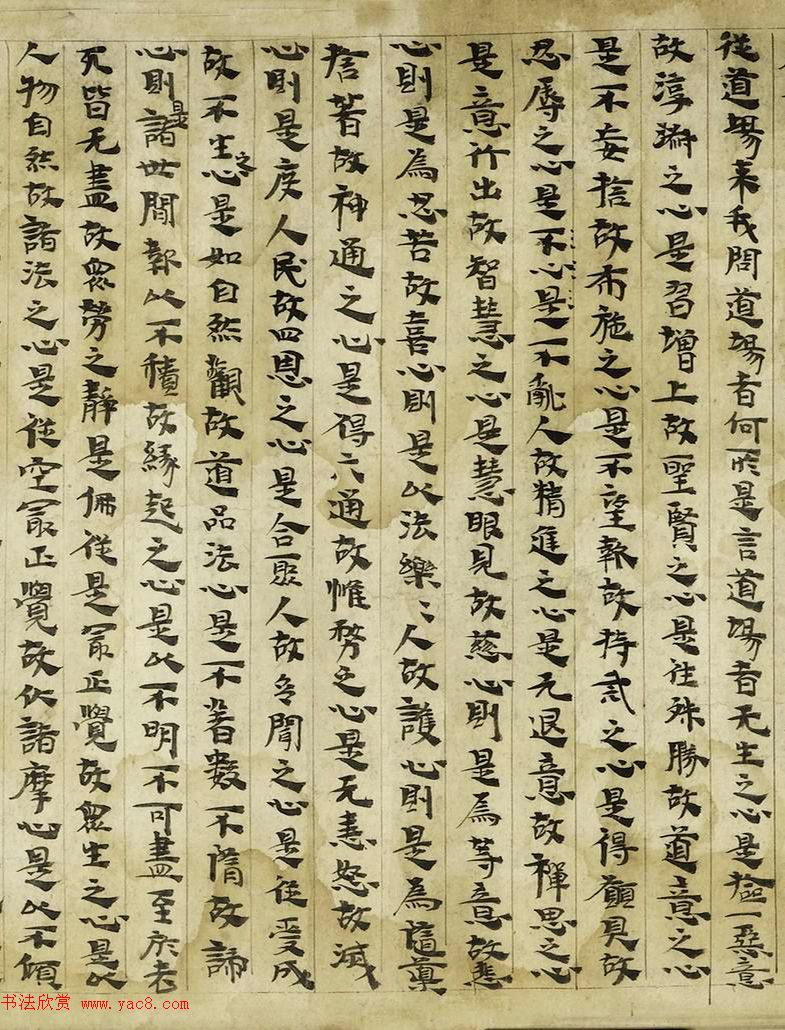 從道場来我問道場者何所是言道場者无生之心是撿一惡意
故淳淑之心是習增上故聖賢之心是往殊勝故道意之心
是不妄捨故布施之心是不望報故持戒之心是得願具故
忍辱之心是不心是不亂人故精進之心是无退意故禪思之心
是意行出故智慧之心是慧眼見故慈心則是為等意故悲
心則是為忍苦故喜心則是以法樂〻人故護心則是為
捨著故神通之心是得六通故惟務之心是无恚怒故滅
心則是度人民故四恩之心是合聚人故多聞之心是從受成
故不生之心是如自然觀故道品法心是不著數不隋故諦
心則是諸世間報以不積故緣起之心是以不明不可盡至於老
死皆无盡故眾勞之静是佛從是冣正覺故眾生之心是以
人物自然故諸法之心是從空冣正覺故伏諸摩心是以不傾
书法欣赏 www.yac8.com